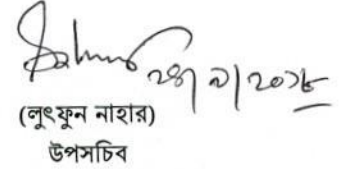 ২৪/৯/২০১৮
(লুৎফুন নাহার)
উপসচিব